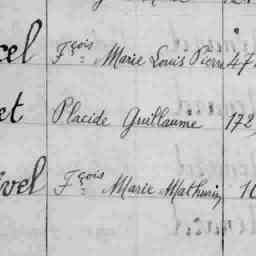 cel Fçois Marie Louis Pierre 47
et Placide Guillaume 172
vel Fçois Marie Mathurin 10